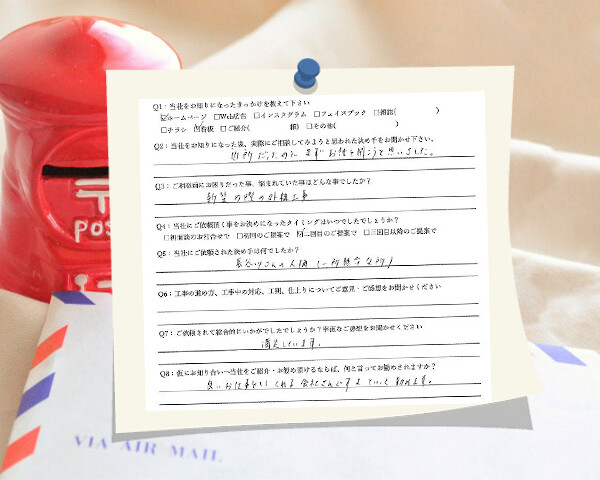 Q1：当社をお知りになったきっかけを教えて下さい
☑ホームページ □Web広告 □インスタグラム □フェイスブック □雑誌( )
□チラシ ☑看板 □ご紹介( 様) □その他( )
Q2：当社をお知りになった後、実際にご相談してみようと思われた決め手をお聞かせ下さい。
近所だったので まずお話を聞こうと思いました。
Q3：ご相談前にお困りだった事、悩まれていた事はどんな事でしたか？
新築の際の外構工事
Q4：当社にご依頼頂く事をお決めになったタイミングはいつでしたでしょうか？
□初面談のお打合せで □初回のご提案で ☑二回目のご提案で □三回目以降のご提案で
Q5：当社にご依頼された決め手は何でしたか？
長谷川さんの人柄
Q6：工事の進め方、工事中の対応、工期、仕上りについてご意見・ご感想をお聞かせください
Q7：ご依頼されて総合的にいかがでしたでしょうか？率直なご感想をお聞かせください
満足しています。
Q8：仮にお知り合いへ当社をご紹介・お勧め頂けるならば、何と言ってお勧めされますか？
良いお仕事をしてくれる会社さんですよ と 勧めます。
POS
VIA AIR MAIL